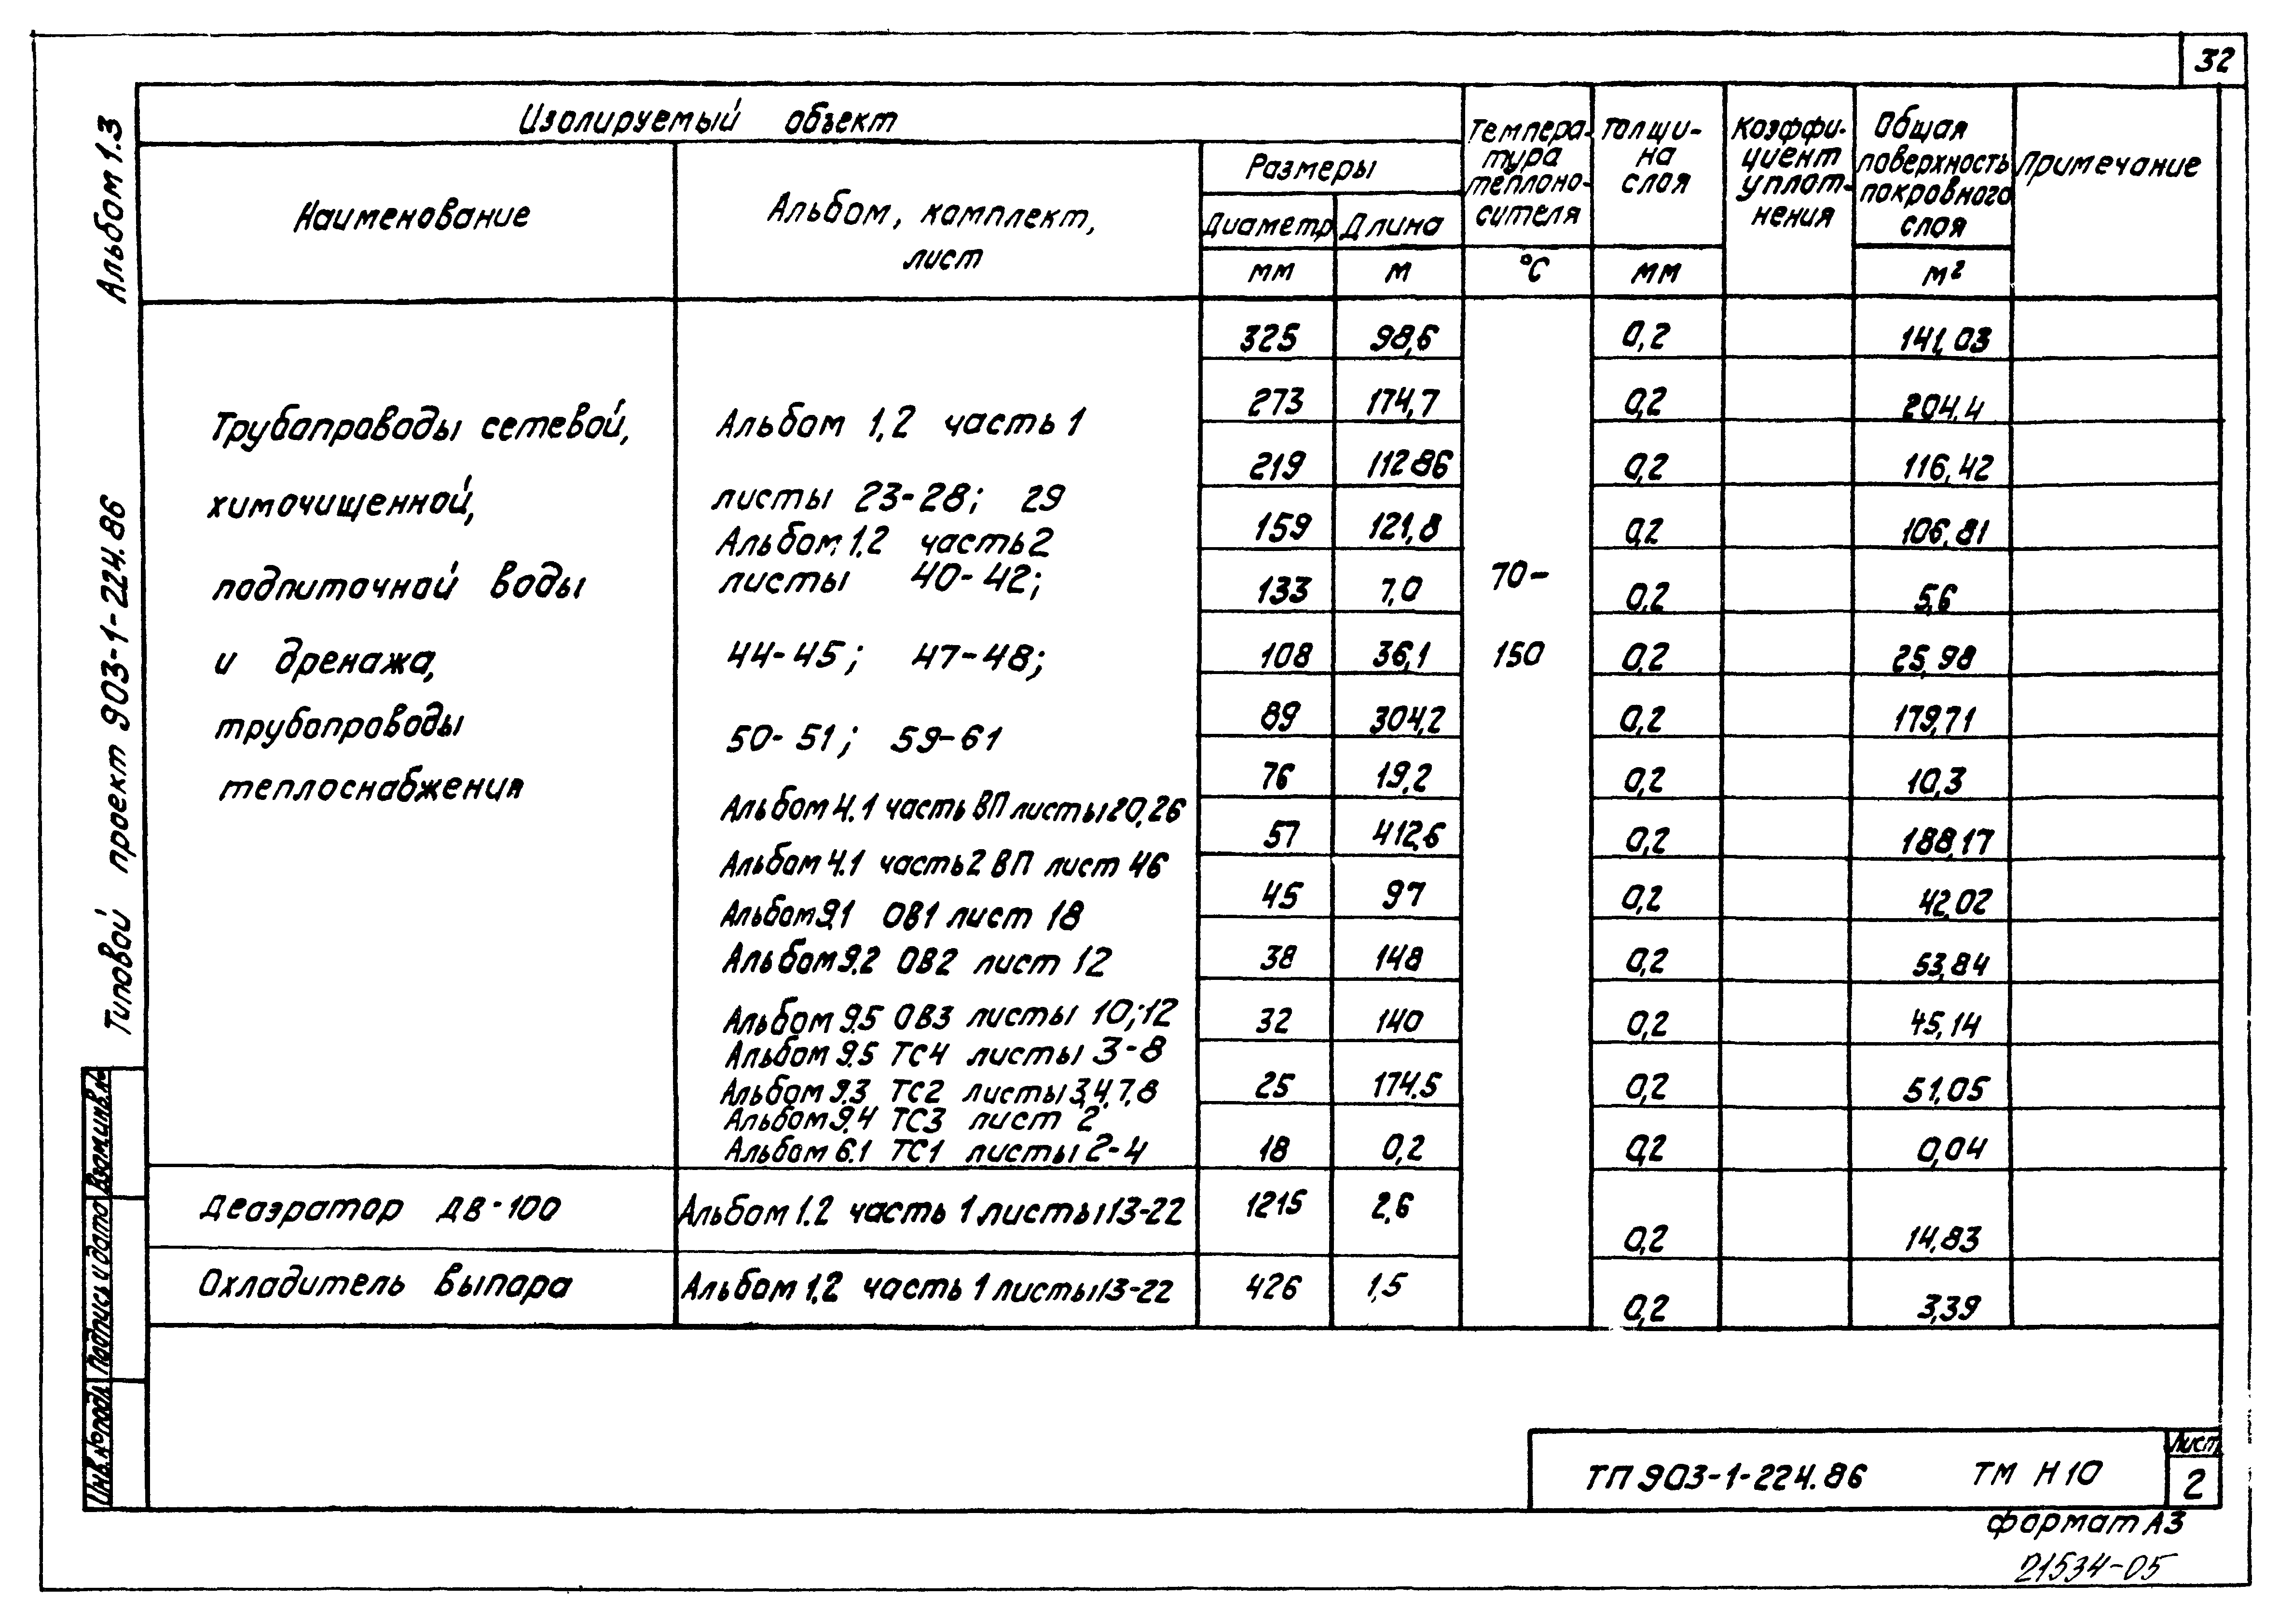 32
Альбом 1.3
Типовой проект 903-1-224.86
Изолируемый объект
Наименование
Альбом, комплект,
лист
Размеры
Диаметр
Длина
мм
м
Темпера-
тура
теплоно-
сителя
°C
Толщи-
на
слоя
мм
Коэффи-
циент
уплот-
нения
Общая
поверхность
покровного
слоя
м²
Примечание
Трубопроводы сетевой,
химочищенной,
подпиточной воды
и дренажа,
трубопроводы
теплоснабжения
Альбом 1,2 часть 1
листы 23-28; 29
Альбом 1.2 часть 2
листы 40-42;
44-45; 47-48;
50-51; 59-61
Альбом 4.1 часть ВП листы 20,26
Альбом 4.1 часть 2 ВП лист 46
Альбом 9,1 ОВ1 лист 18
Альбом 9.2 ОВ2 лист 12
Альбом 9.5 ОВ3 листы 10;12
Альбом 9.5 ТС4 листы 3-8
Альбом 9.3 ТС2 листы 3,4,7,8
Альбом 9.4 ТС3 лист 2
Альбом 6.1 ТС1 листы 2-4
70-
150
325 98,6 0,2 141,03
273 174,7 0,2 204,4
219 112 86 0,2 116,42
159 121,8 0,2 106,81
133 7,0 0,2 5,6
108 36,1 0,2 25,98
89 304,2 0,2 179,71
76 19,2 0,2 10,3
57 412,6 0,2 188,17
45 97 0,2 42,02
38 148 0,2 53,84
32 140 0,2 45,14
25 174.5 0,2 51,05
18 0,2 0,2 0,04
Деаэратор ДВ-100 Альбом 1.2 часть 1 листы 13-22 1215 2,6 0,2 14,83
Охладитель выпара Альбом 1.2 часть 1 листы 13-22 426 1,5 0,2 3,39
Взам.инв.№
Подпись и дата
Инв.№подл.
ТП 903-1-224.86 ТМ Н10
Лист
2
формат А3
21534-05